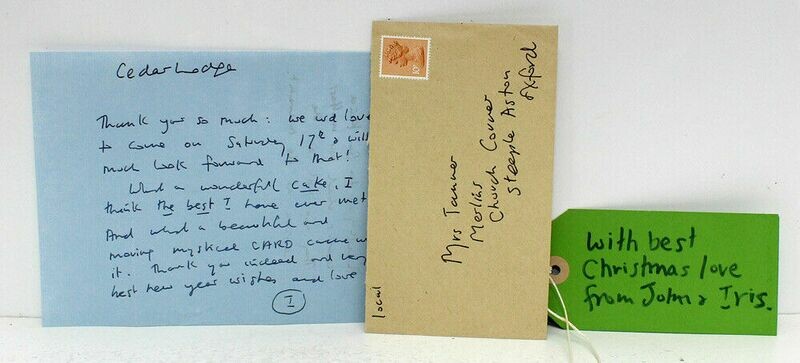 Cedar Lodge
Thank you so much: we wd love
to come on Saturday 17th & will
much look forward to that!
What a wonderful cake, I
think the best I have ever met
And what a beautiful and
moving mystical CARD came w
it. Thank you indeed and very
best new year wishes and love
I
10P
Mrs Tanner
Merlins
Church Corner
Steeple Aston
Oxford
local
with best
Christmas love
from John & Iris.